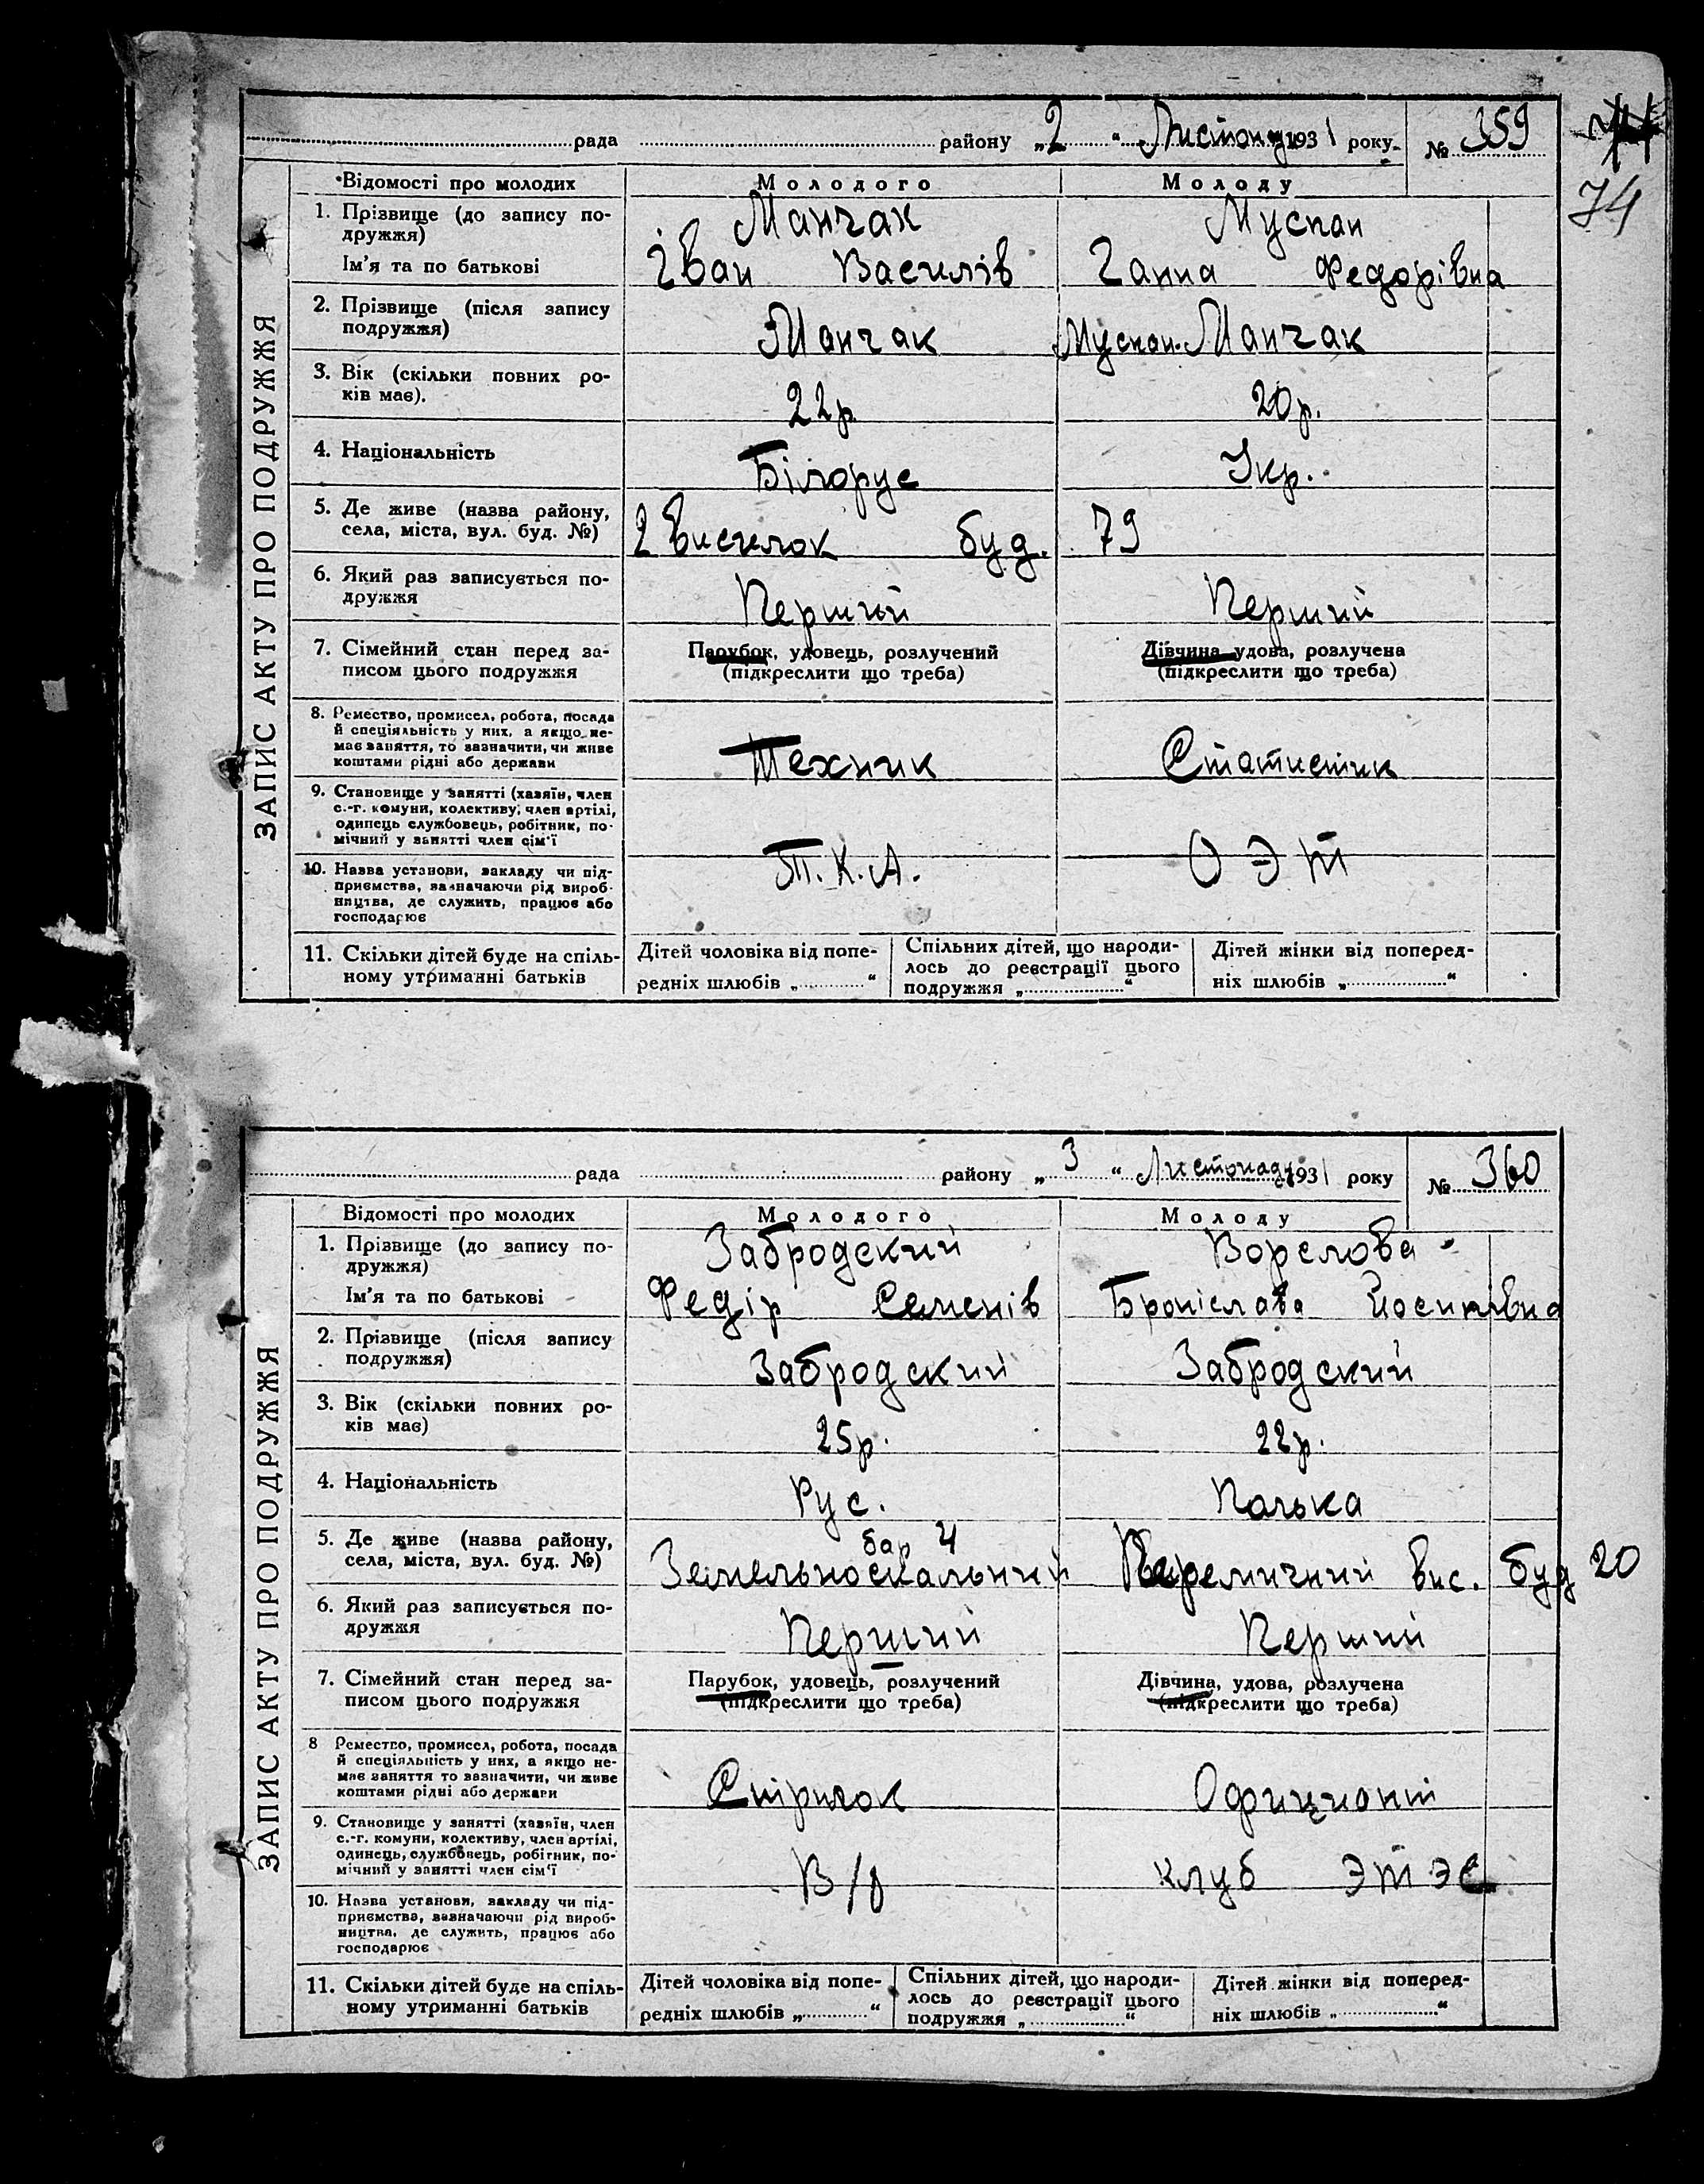 рада района „2“ Листопад 1931 року № 359
74
Відомості про молодих Молодого Молоду
1. Прізвище (до запису по-
дружжя) Манчак Мускан
Ім'я та по батькові Іван Василів Ганна Федорівна
2. Прізвище (після запису
подружжя) Манчак Мускан-Манчак
3. Вік (скільки повних ро-
ків має). 22р. 20р.
4. Національність Білорус Укр.
5. Де живе (назва району,
села, міста, вул. буд. №) 2 Виселок буд. 79
6. Який раз записується по-
дружжя Перший Перший
7. Сімейний стан перед за-
писом цього подружжя
Парубок, удовець, розлучений
(підкреслити що треба)
Дівчина удова, розлучена
(підкреслити що треба)
8. Ремество, промисел, робота, посада
й спеціяльність у них, а якщо не-
має заняття, то зазначити, чи живе
коштами рідні або держави
Техник Статистик
9. Становище у занятті (хазяїн, член
с.-г. комуни, колективу, член артілі,
одинець службовець, робітник, по-
мічний у занятті член сім'ї
Т.К.А. О Э Т
10. Назва установи, закладу чи під-
приємства, зазначаючи рід вироб-
ництва, де служить, працює або
господарює
11. Скільки дітей буде на спіль-
ному утриманні батьків
Дітей чоловіка від попе-
редніх шлюбів „ “
Спільних дітей, що народи-
лось до реєстрації цього
подружжя „ “
Дітей жінки від поперед-
ніх шлюбів „ “
ЗАПИС АКТУ ПРО ПОДРУЖЖЯ
рада району „3“ Листопада 1931 року № 360
Відомості про молодих Молодого Молоду
1. Прізвище (до запису по-
дружжя) Забродский Ворслова
Ім'я та по батькові Федір Семенів Броніслава Йосипівна
2. Прізвище (після запису
подружжя) Забродский Забродский
3. Вік (скільки повних ро-
ків має) 25р. 22р.
4. Національність Рус. Полька
5. Де живе (назва району,
села, міста, вул. буд. №) Земельноскальний бар 4 Перемичний вис. буд 20
6. Який раз записується по-
дружжя Перший Перший
7. Сімейний стан перед за-
писом цього подружжя
Парубок, удовець, розлучений
(підкреслити що треба)
Дівчина, удова, розлучена
(підкреслити що треба)
8 Ремество, промисел, робота, посада
й спеціяльність у них, а якщо не-
має заняття то зазначити, чи живе
коштами рідні або держави
Стрілок Официонт
9. Становище у занятті (хазяїн, член
с.-г. комуни, колективу, член артілі,
одинець, службовець, робітник, по-
мічний у занятті член сім'ї
В/О клуб ЭТЭС
10. Назва установи, закладу чи під-
приємства, зазначаючи рід вироб-
ництва, де служить, працює або
господарює
11. Скільки дітей буде на спіль-
ному утриманні батьків
Дітей чоловіка від попе-
редніх шлюбів „ “
Спільних дітей, що народи-
лось до реєстрації цього
подружжя „ “
Дітей жінки від поперед-
ніх шлюбів „ “
ЗАПИС АКТУ ПРО ПОДРУЖЖЯ